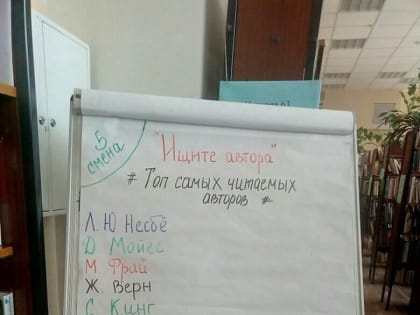 5
смена
"Ищите автора"
# Топ самых читаемых
авторов #
Л. Ю Несбё
Д Мойес
М. Фрай
Ж. Верн
С. Кинг